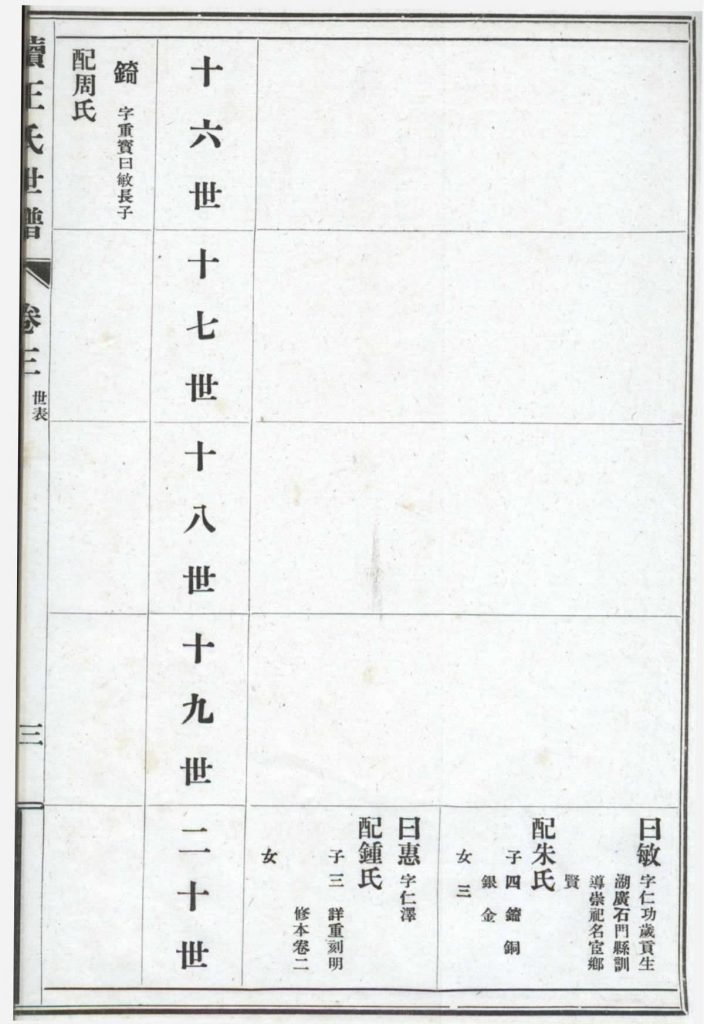 曰敏
字仁功歲貢生
湖廣石門縣訓
導崇祀名宦鄉
賢
配朱氏
子四 鐕 銅
銀 金
女三
曰惠 字仁澤
配鍾氏
子三 詳重刻明
修本卷二
女
十六世
十七世
十八世
十九世
二十世
錡 字重寳曰敏長子
配周氏
續王氏世譜
卷三
世表
三